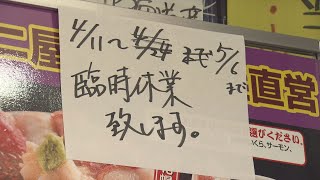 4/11〜4/24まで5/6まで
臨時休業
致します。
二屋
直営
選びください。
くら、サーモン。